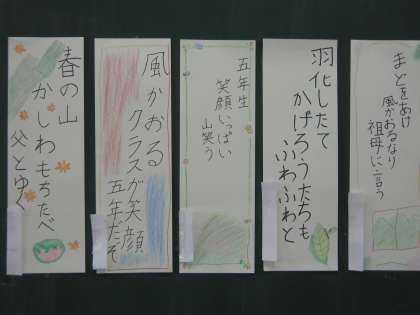 まどをあけ
風かおるなり
祖母に言う
羽化したて
かげろうたちも
ふわふわと
五年生
笑顔いっぱい
山笑う
風かおる
クラスが笑顔
五年だぞ
春の山
かしわもちたべ
父とゆく